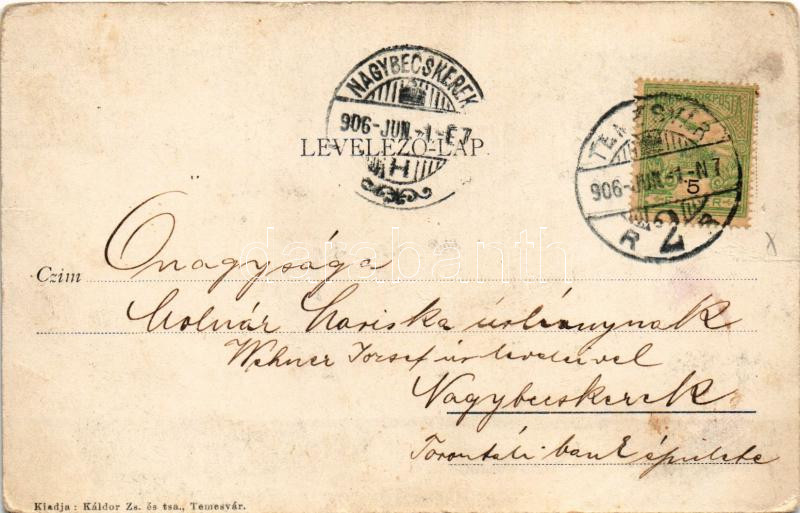 NAGYBECSKEREK
906-JUN.-1.-E7
H
LEVELEZŐ-LAP.
TEMESVÁR
906-JUN.-1.-N7
R 2
5
Czim
Őnagysága
Molnár Mariska úrleánynak
Wehner József úr leveleivel
Nagybecskerek
Torontáli bank épülete
darabanth
Kiadja : Káldor Zs. és tsa., Temesvár.